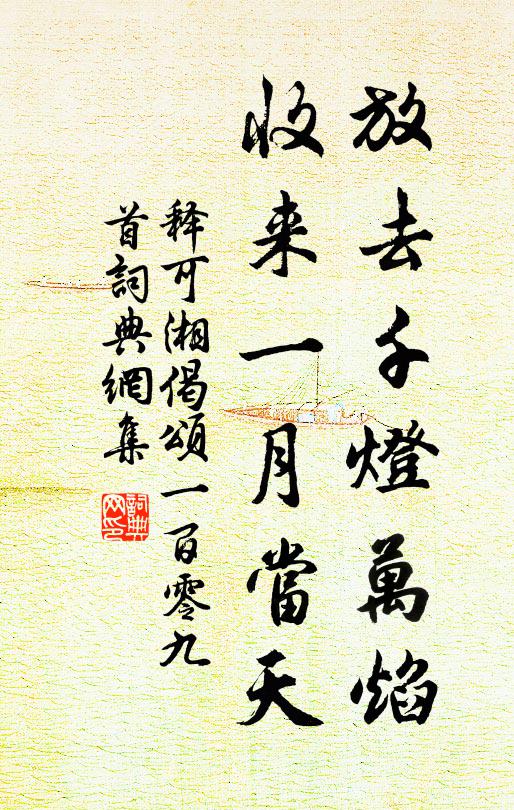 放去千燈萬焰
收来一月當天
释可湘偈頌一百零九
首詞典網集
詞典
网印